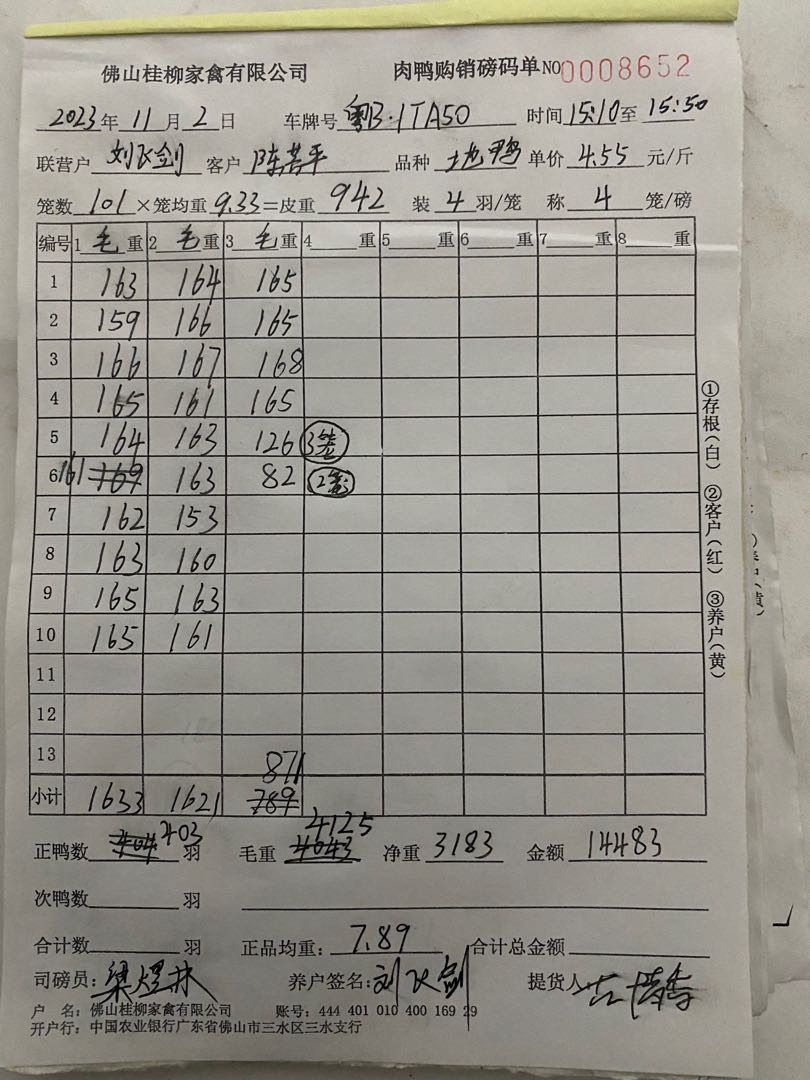 佛山桂柳家禽有限公司 肉鸭购销磅码单 NO 0008652
2023年 11月 2日 车牌号 粤B·1TA50 时间 15:10至 15:50
联营户 刘飞剑 客户 陈其平 品种 土地鸭 单价 4.55 元/斤
笼数 101 ×笼均重 9.33=皮重 942 装 4 羽/笼 称 4 笼/磅
编号 1 毛 重 2 毛 重 3 毛 重 4 重 5 重 6 重 7 重 8 重
1 163 164 165
2 159 166 165
3 166 167 168
4 165 161 165
5 164 163 126 3笼
6 161 169 163 82 2笼
7 162 153
8 163 160
9 165 163
10 165 161
11
12
13
871
小计 1633 1621 789
4125
正鸭数 404 403 羽 毛重 4043 净重 3183 金额 14483
次鸭数 羽
合计数 羽 正品均重: 7.89 合计总金额
司磅员: 梁煜林 养户签名: 刘飞剑 提货人
户 名: 佛山桂柳家禽有限公司 账号: 444 401 010 400 169 29
开户行: 中国农业银行广东省佛山市三水区三水支行
①存根(白) ②客户(红) ③养户(黄)